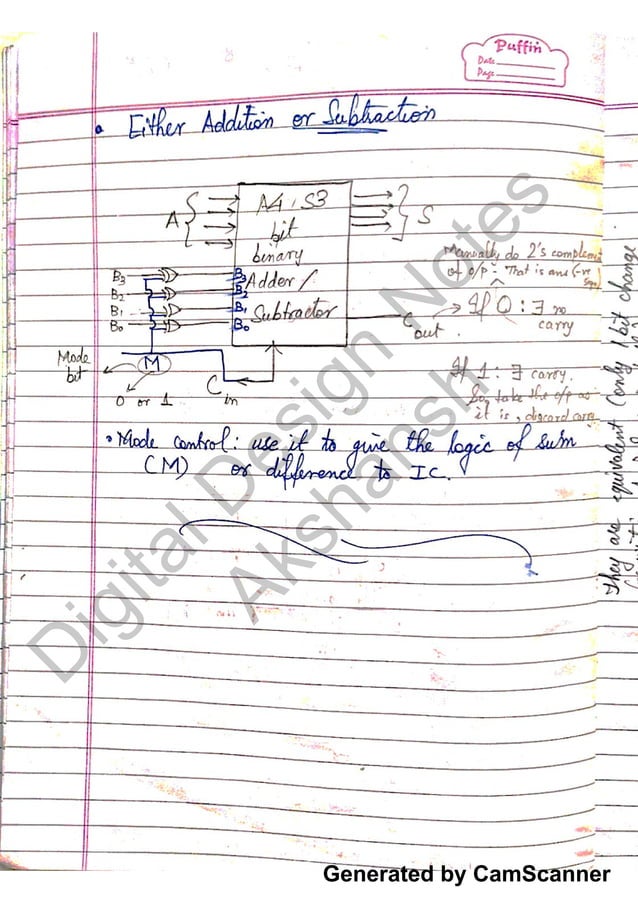 Puffin
Date
Page
Either Addition or Subtraction
A
A4, S3
bit
binary
Adder/
Subtractor
S
B3
B2
B1
B0
B3
B2
B1
B0
Manually do 2's complement
of o/p - That is ans (-ve
sign)
If 0 : ∃ no
carry
Cout
If 1 : ∃ carry.
So, take the o/p as
it is, discard carry
Mode
bit
M
0 or 1
Cin
• Mode control: use it to give the logic of sum
(M) or difference to IC.
They are equivalent (only 1 bit change
Digital Design Notes
Akshansh
Generated by CamScanner